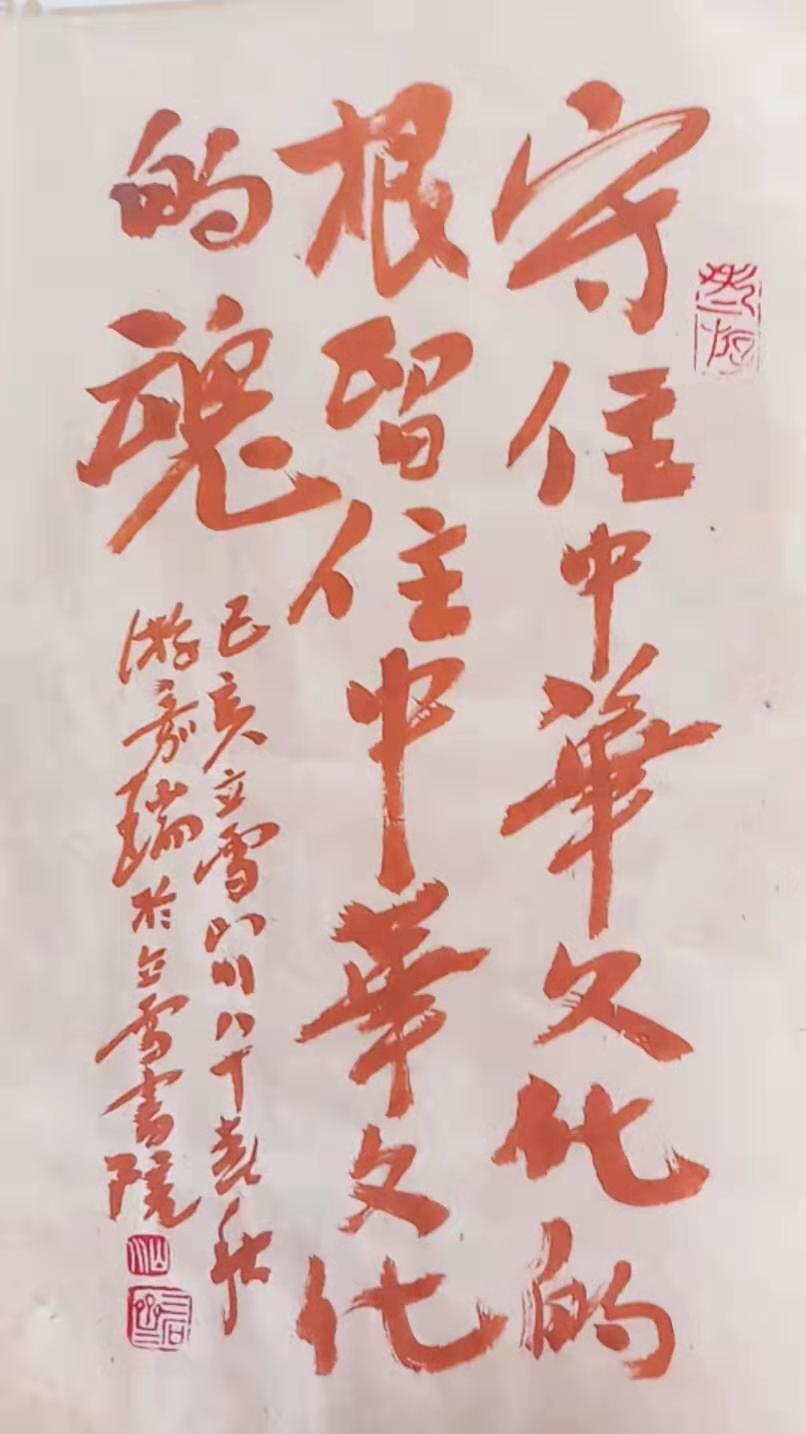 守住中華文化的
根留住中華文化
的魂
己亥立雪山川八十春秋
游嘉瑞於立雪書院
山川